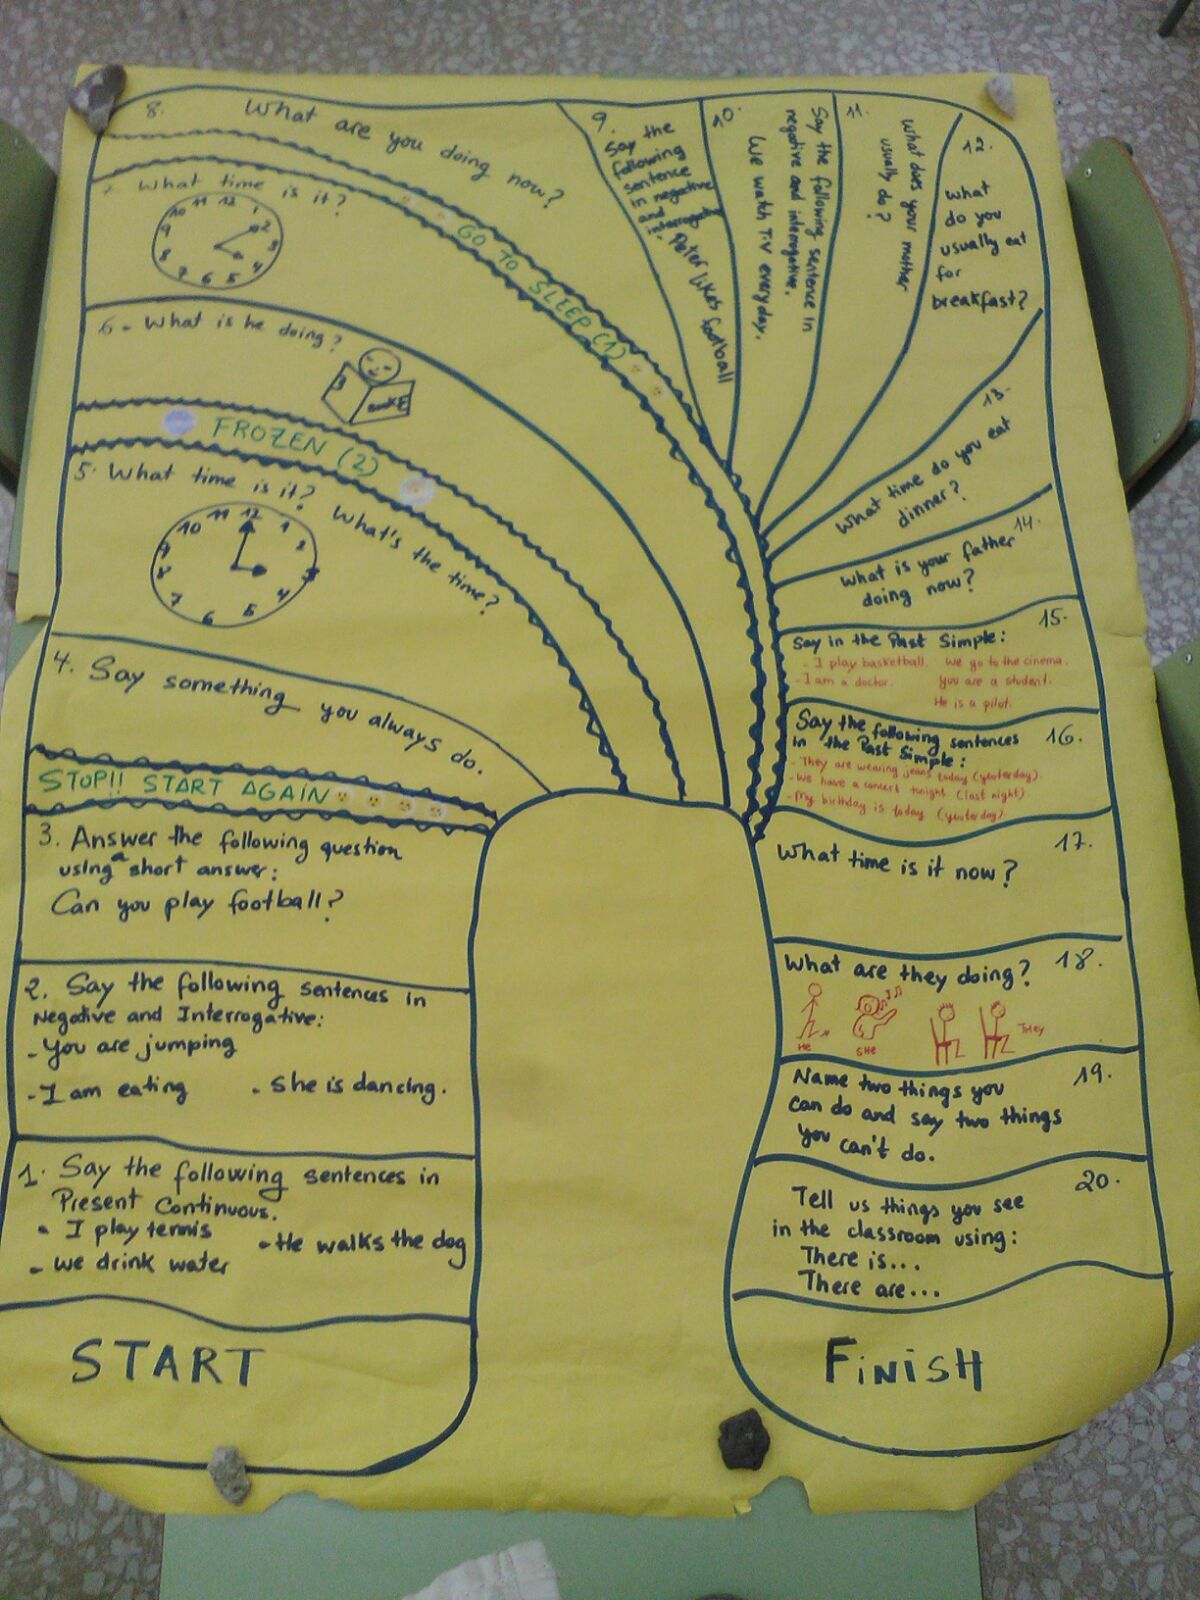 START
1. Say the following sentences in
Present Continuous.
- I play tennis
- He walks the dog
- we drink water
2. Say the following sentences in
Negative and Interrogative:
- You are jumping
- I am eating
- She is dancing.
3. Answer the following question
using a short answer:
Can you play football?
STOP!! START AGAIN
4. Say something you always do.
5. What time is it? What's the time?
11 12 1
10 2
9 3
8 4
7 6 5
FROZEN (2)
6- What is he doing?
BOOK
7. What time is it?
10 11 12 1
9 2
8 4
7 6 5
GO TO SLEEP (1)
8. What are you doing now?
9.
Say the
following
sentence
in negative
and
interrogative.
Peter likes football
10.
Say the following sentence in
negative and interrogative.
We watch TV every day.
11.
What does your mother
usually do?
12.
What
do you
usually eat
for
breakfast?
13.
What time do you eat
dinner?
14.
What is your father
doing now?
15.
Say in the Past Simple:
- I play basketball. We go to the cinema.
- I am a doctor. You are a student.
He is a pilot.
16.
Say the following sentences
in the Past Simple:
- They are wearing jeans today (yesterday).
- We have a concert tonight (last night).
- My birthday is today (yesterday)
17.
What time is it now?
18.
What are they doing?
HE SHE They
19.
Name two things you
can do and say two things
you can't do.
20.
Tell us things you see
in the classroom using:
There is...
There are...
FINISH